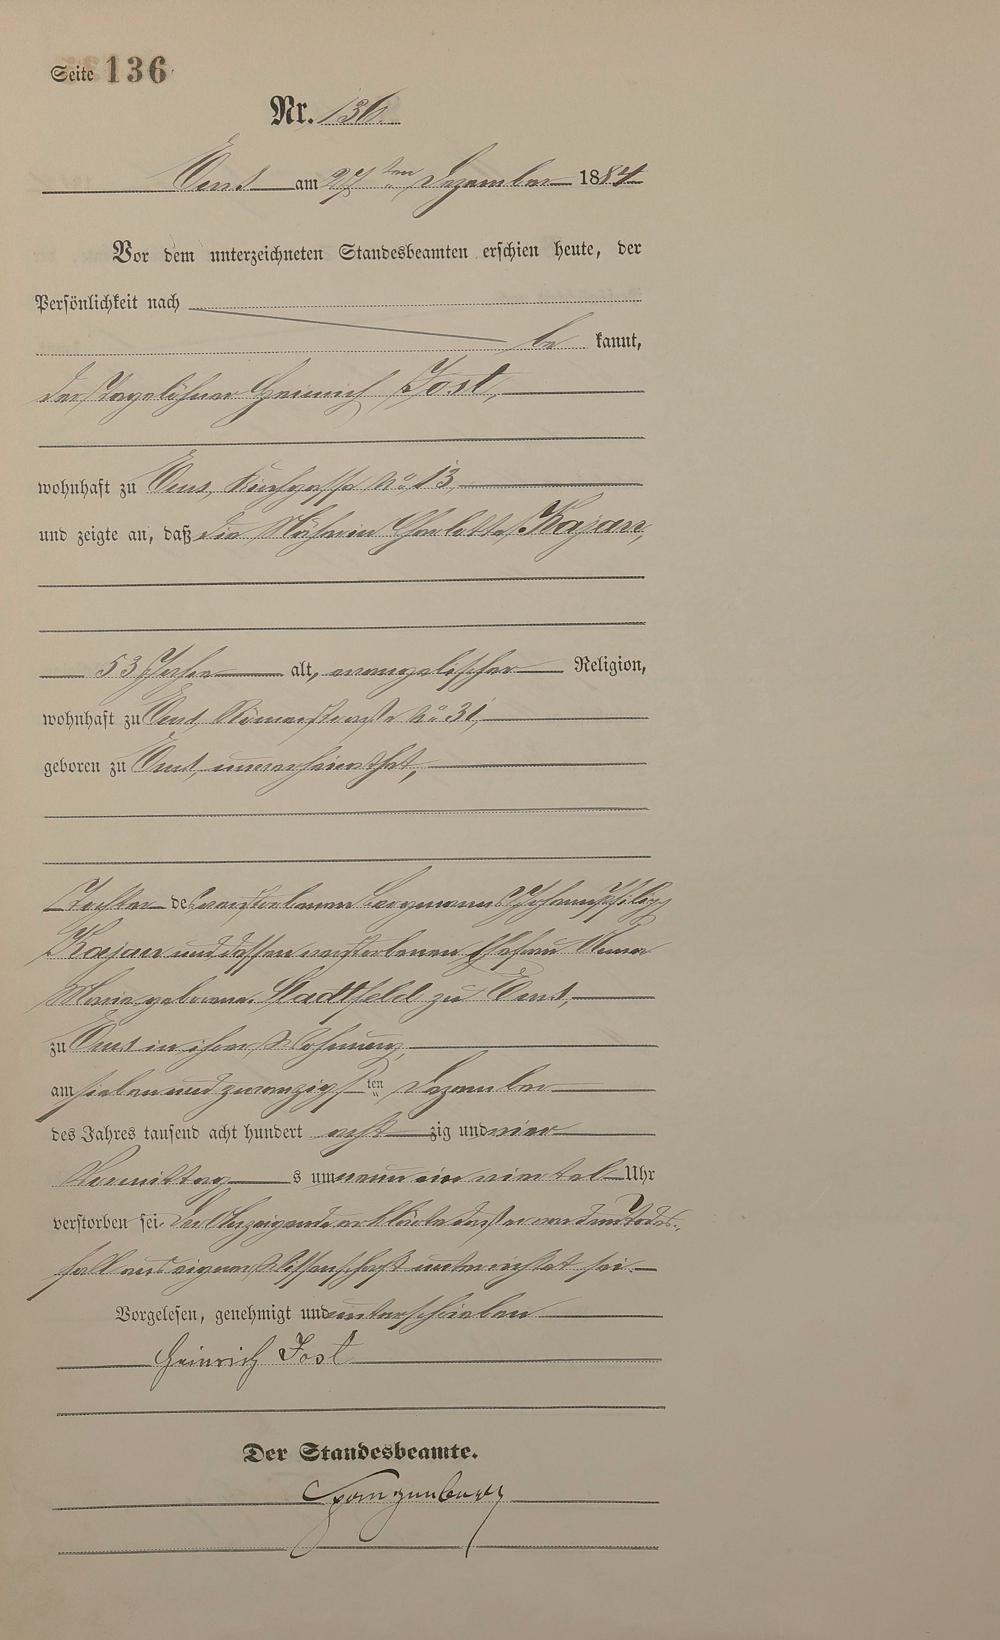 Seite 136
Nr. 136.
Ems am 27ten Dezember 1884
Vor dem unterzeichneten Standesbeamten erschien heute, der
Persönlichkeit nach
be kannt,
der Tagelöhner Heinrich Jost,
wohnhaft zu Ems, Kirchgasse No 13
und zeigte an, daß die Näherin Charlotte Kajan,
53 Jahre alt, evangelischer Religion,
wohnhaft zu Ems, Römerstraße No 31,
geboren zu Ems, unverheirathet,
Tochter des verstorbenen Bergmanns Johann Philipp
Kajan und dessen verstorbenen Ehefrau Anna
Maria geborene Stadtfeld zu Ems,
zu Ems in ihrer Wohnung,
am sieben und zwanzigsten Dezember
des Jahres tausend acht hundert acht zig und vier
Vormittags um neun ein viertel Uhr
verstorben sei. Der Anzeigende erklärte daß er von dem Todes-
fall aus eigener Wissenschaft unterrichtet sei.
Vorgelesen, genehmigt und unterschrieben
Heinrich Jost
Der Standesbeamte.